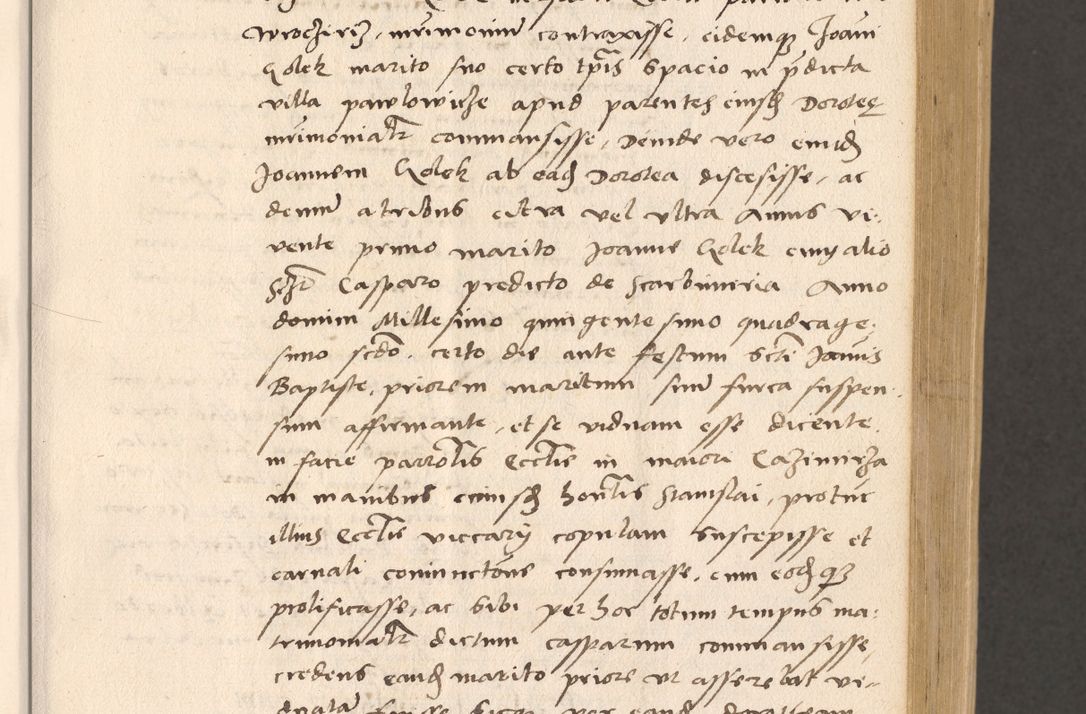 Wrocziriz, mrimonium contraxisse, eidemque Joanni
Golek marito suo certo tpris spacio in pdicta
villa pawlowicze apud parentes eiusd Dorotee
mrimonialr commansisse, Deinde vero eund
Joannem Golek ab ead Dorotea discesisse, ac
demum a tribus citra vel ultra Annis vi-
vente primo marito Joanne Golek cum alio
Casparo predicto de Scarbimiria Anno
domini Millesimo quingentesimo quadrage-
simo scdo, certo die ante festum scti Joannis
Baptiste, priorem maritum suum furca suspen-
sum affirmante, et se viduam esse dicente,
in facie parrolis Ecclis in maiori Cazimirza
in manibus cuiusd honlis Stanislai, protunc
illius Ecclis viccarij copulam suscepisse et
carnali coniunctone consumasse, cum eodque
prolificasse, ac sibi per hoc totum tempus ma-
trimonialr dictum casparum commansisse,
credens eand marito priore ut asserebat vi-
duatam fuisse